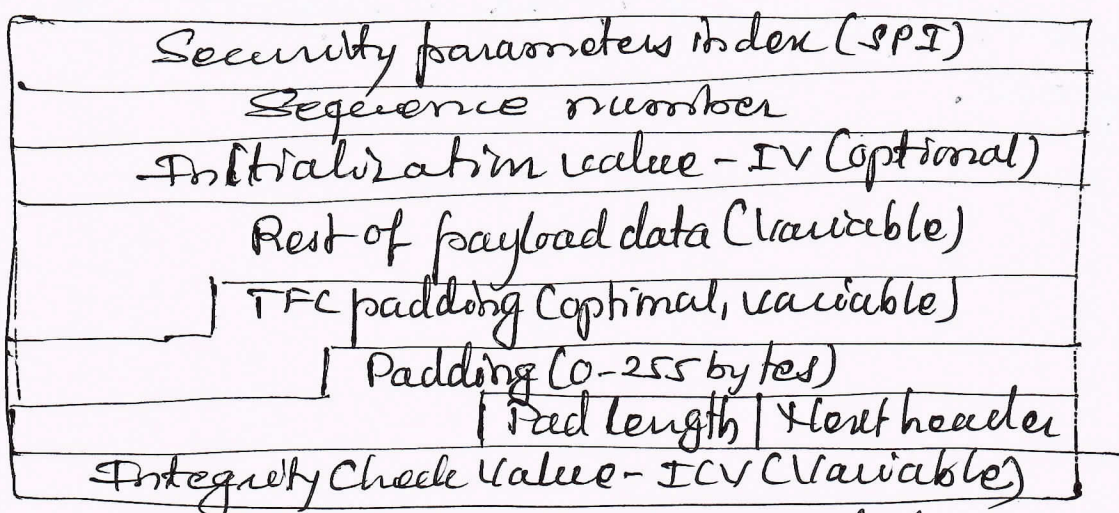 Security parameters index (SPI)
Sequence number
Initialization value - IV (optional)
Rest of payload data (Variable)
TFC padding (optional, variable)
Padding (0-255 bytes)
Pad length | Next header
Integrity Check Value - ICV (Variable)